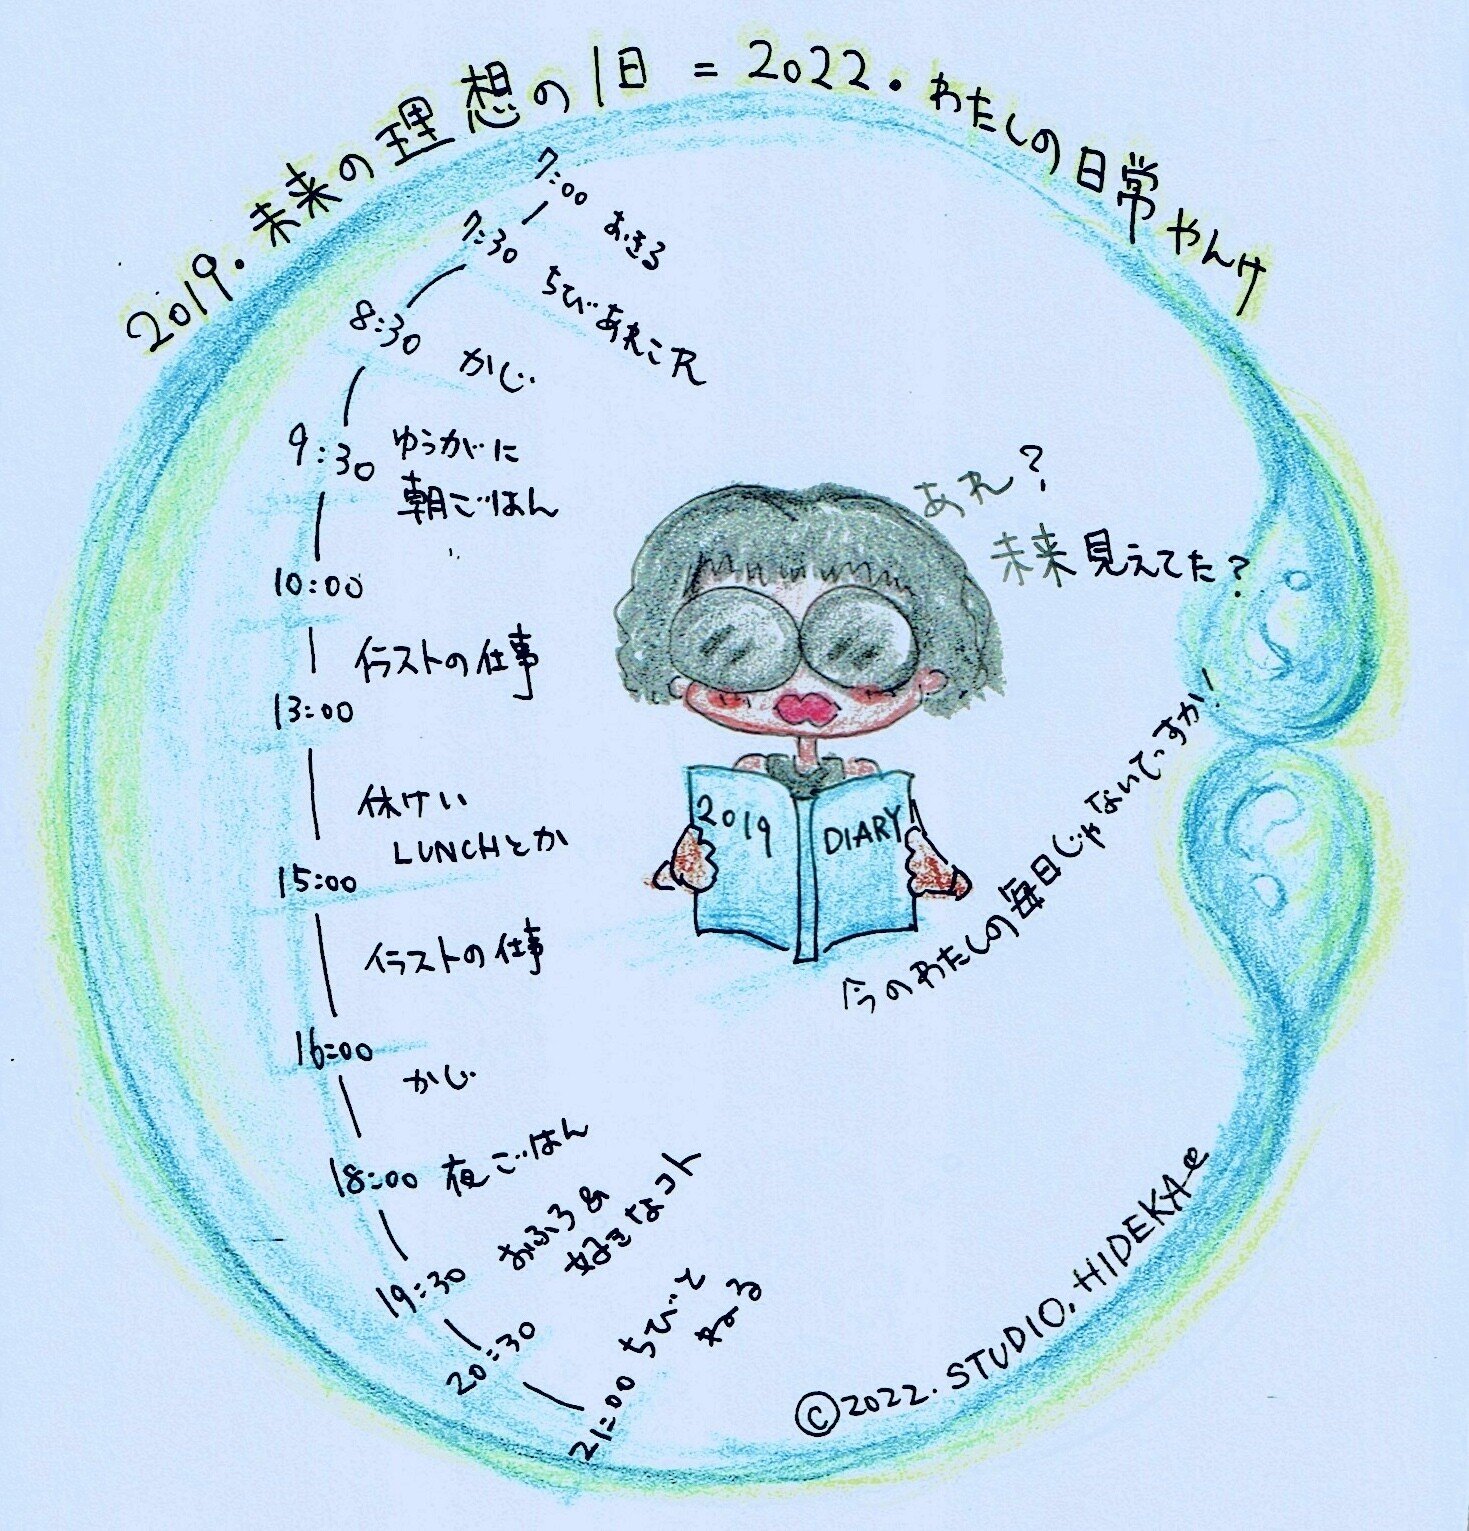 2019.未来の理想の1日 = 2022.わたしの日常やんけ
7:00 おきる
7:30 ちびあれこれ
8:30 かじ
9:30 ゆうがに
朝ごはん
10:00
イラストの仕事
13:00
休けい
LUNCHとか
15:00
イラストの仕事
16:00
かじ
18:00 夜ごはん
19:30 おふろ&
好きなコト
20:30
21:00 ちびと
ねる
あれ?
未来見えてた?
2019 DIARY
今のわたしの毎日じゃないでっすか!
©2022.STUDIO.HIDEKA